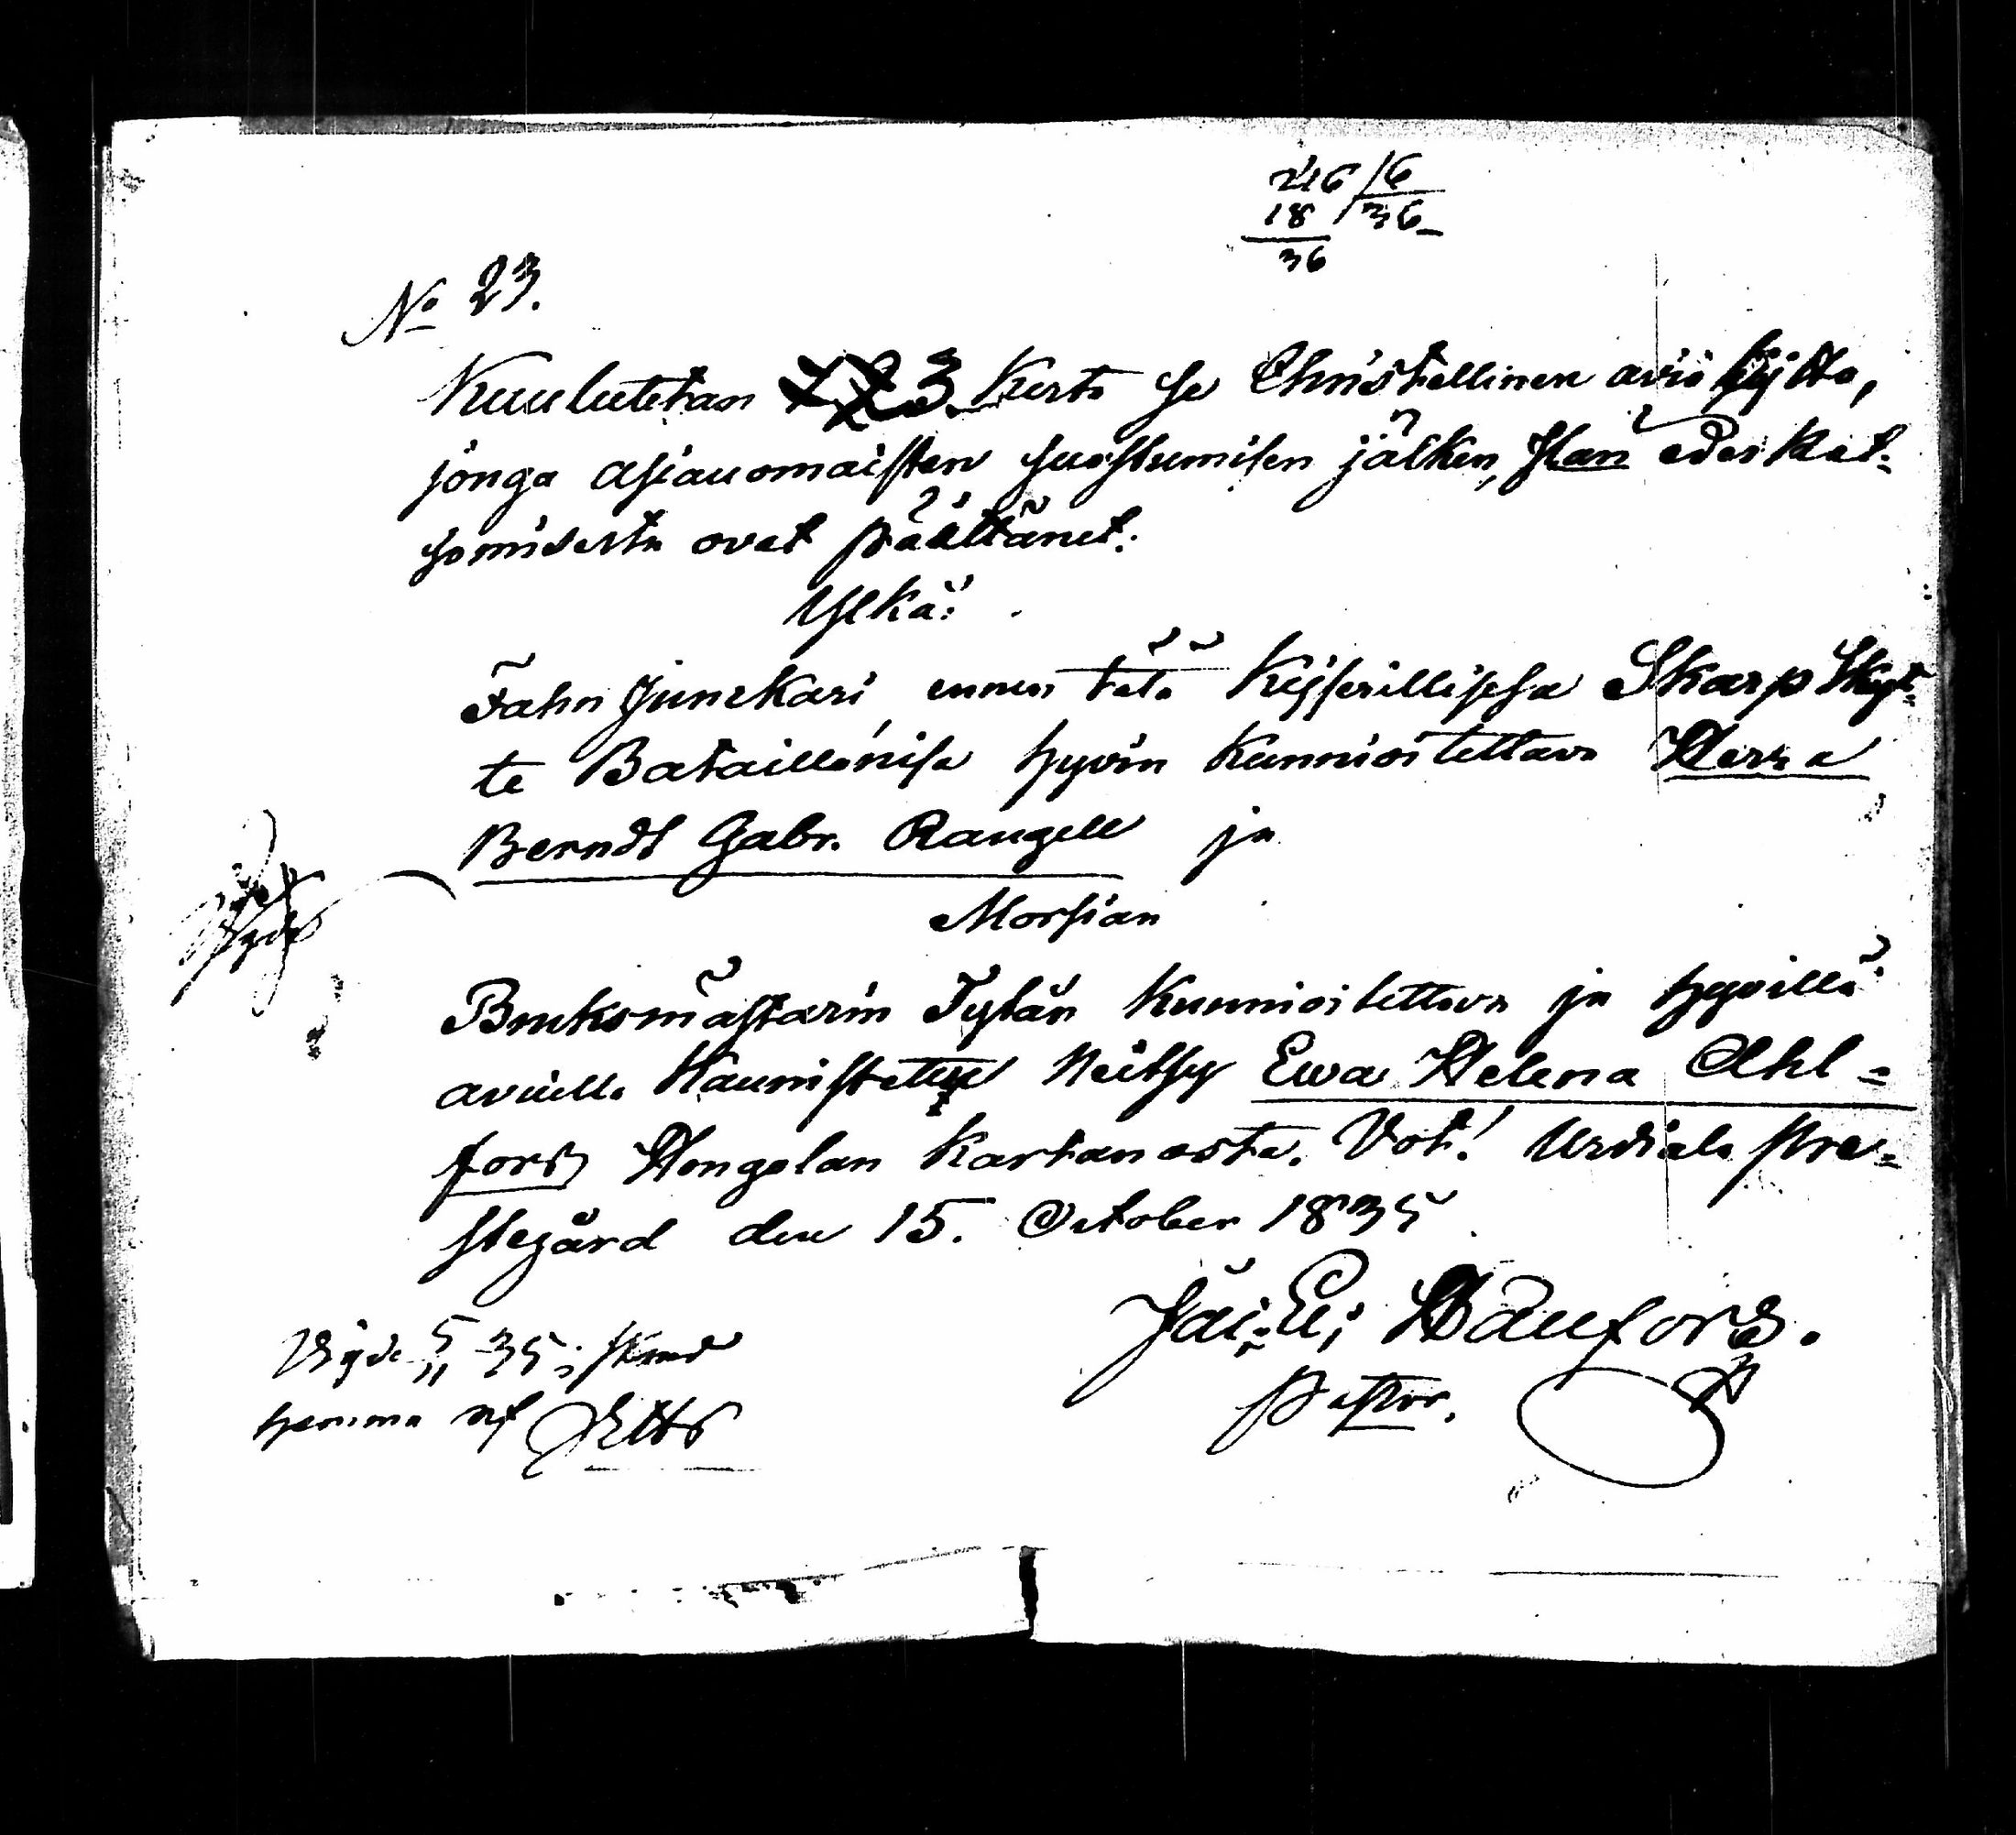 246/6
18/36
36
No 23.
Kuulutetan 1 2 3 Kerta se Christellinen avio lijtto,
jonga asiauomaisten suostumisen jälken, Han edeskat-
somisesta ovat päättänet:
Ylkä:
Fahn Junckari, ennen tätä Kejserillisesä Skarp Skyt-
te Bataillonisa hyvin Kunnioitettava Herra
Berndt Gabr. Rangell ja
Morsian
Bruksmästarin Tytär Kunnioitettava ja hyvillä
avuilla Kaunistettu Neitsy Ewa Helena Ahl-
fors Hongolan Kartanosta. Vot! Urdiala Pre-
stegård den 15. October 1835
Hanfors.
Pastor.
Vigde 5/11 35 i
hemma af